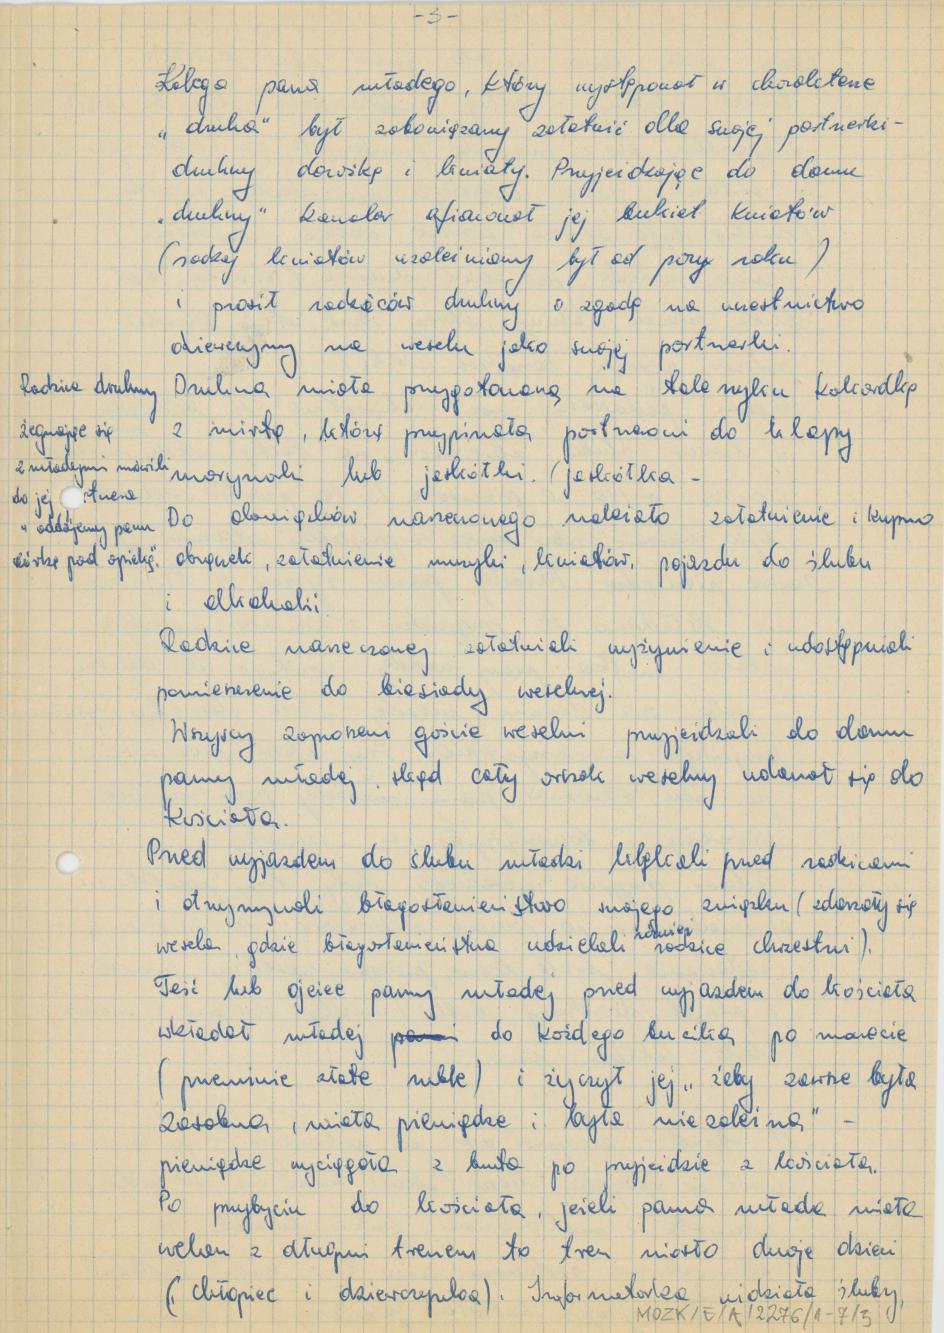 -3-
Kolega pana młodego, który występował w charakterze
„druha" był zobowiązany załatwić dla swojej partnerki-
druhny dorożkę i kwiaty. Przyjeżdżając do domu
„druhny" kawaler ofiarował jej bukiet kwiatów
(rodzaj kwiatów uzależniony był od pory roku)
i prosił rodziców druhny o zgodę na uczestnictwo
dziewczyny na weselu jako swojej partnerki.
Druhna miała przygotowaną na talerzyku kokardkę
z mirtą, którą przypinała partnerowi do klapy
marynarki lub jaskółki. (jaskółka -
Rodzice druhny
żegnając się
z młodymi mówili
do jej partnera
„oddajemy panu
córkę pod opiekę".
Do obowiązków narzeczonego należało załatwienie i kupno
obrączek, załatwienie muzyki, kwiatów, pojazdu do ślubu
i alkoholi
Rodzice narzeczonej załatwiali wyżywienie i udostępniali
pomieszczenie do biesiady weselnej.
Wszyscy zaproszeni goście weselni przyjeżdżali do domu
panny młodej, skąd cały orszak weselny udawał się do
Kościoła.
Przed wyjazdem do ślubu młodzi klękali przed rodzicami
i otrzymywali błogosławieństwo swojego związku (zdarzały się
wesela, gdzie błogosławieństwa udzielali również rodzice chrzestni).
Teść lub ojciec panny młodej przed wyjazdem do kościoła
wkładał młodej do każdego bucika po monecie
(przeważnie złote ruble) i życzył jej „żeby zawsze była
zasobna, miała pieniądze i była niezależna" -
pieniądze wyciągała z buta po przyjeździe z kościoła.
Po przybyciu do kościoła, jeżeli panna młoda miała
welon z długim trenem to tren niosło dwoje dzieci
(chłopiec i dziewczynka). Informatorka widziała śluby,
MOZK/E/A/2276/1-7/3